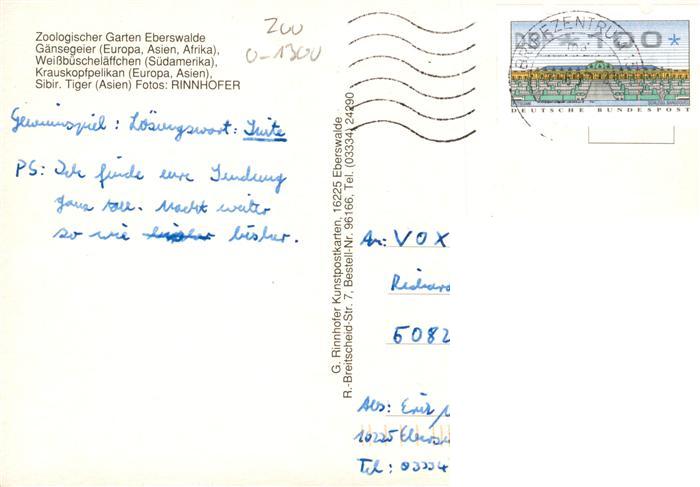 Zoologischer Garten Eberswalde
Gänsegeier (Europa, Asien, Afrika),
Weißbüscheläffchen (Südamerika),
Krauskopfpelikan (Europa, Asien),
Sibir. Tiger (Asien) Fotos: RINNHOFER
Zoo
0-1300
Gewinnspiel: Lösungswort: Suite
PS: Ich finde eure Sendung
ganz toll. Macht weiter
so wie bisher bisher.
G. Rinnhofer Kunstpostkarten, 16225 Eberswalde,
R.-Breitscheid-Str. 7, Bestell-Nr. 96166, Tel. (03334) 24290
BRIEFZENTRUM
DBP *100*
DEUTSCHE BUNDESPOST
An: VOX
Richard
5082
Abs: Eric
16225 Ebers
Tel: 03334